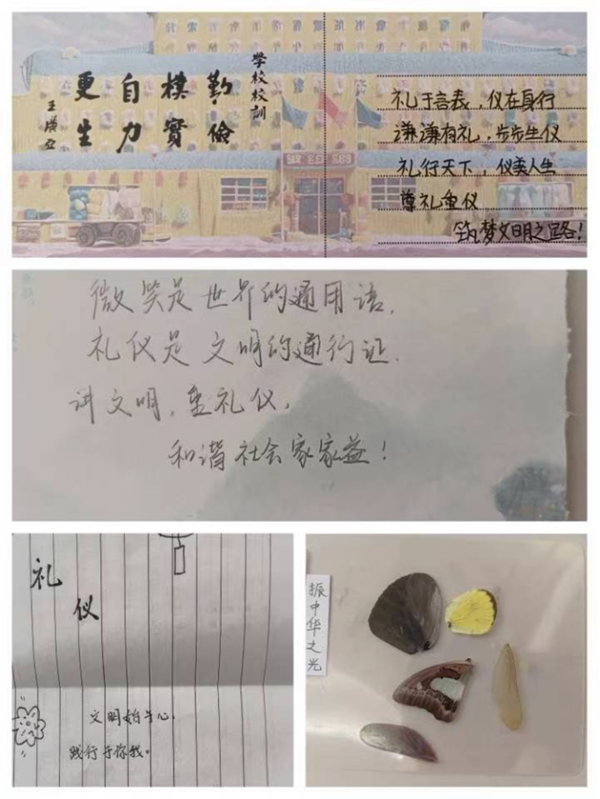 學校校訓
勤儉
樸實
自力
更生
礼于言表，仪在身行
谦谦有礼，步步生仪
礼行天下，仪美人生
尊礼重仪
筑梦文明之路！
微笑是世界的通用语，
礼仪是文明的通行证.
讲文明，重礼仪，
和谐社会家家益！
礼仪
文明始于心，
践行于你我。
振中华之光